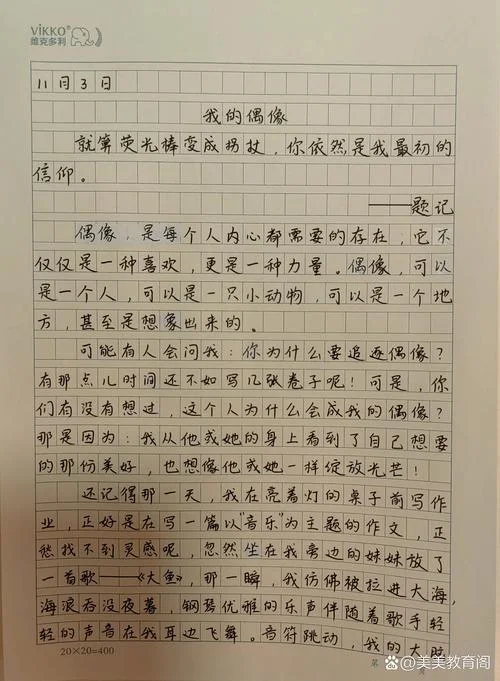 ViKKO®
维克多利
11月3日
我的偶像
就算荧光棒变成拐杖，你依然是我最初的
信仰。
——题记
偶像，是每个人内心都需要的存在；它不
仅仅是一种喜欢，更是一种力量。偶像，可以
是一个人，可以是一只小动物，可以是一个地
方，甚至是想象出来的。
可能有人会问我：你为什么要追逐偶像？
有那点儿时间还不如写几张卷子呢！可是，你
们有没有想过，这个人为什么会成我的偶像？
那是因为：我从他或她的身上看到了自己想要
的那份美好，也想像他或她一样绽放光芒！
还记得那一天，我在亮着灯的桌子前写作
业，正好是在写一篇以"音乐"为主题的作文，正
愁找不到灵感呢，忽然坐在我旁边的妹妹放了
一首歌——《大鱼》，那一瞬，我仿佛被拉进大海，
海浪吞没夜幕，钢琴优雅的乐声伴随着歌手轻
轻的声音在我耳边飞舞。音符跳动，我的大脑
20×20=400
第
头条@美美教育阁